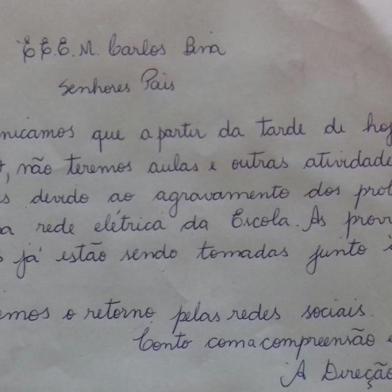 E.E.E.M. Carlos Bina
Senhores Pais
nicamos que a partir da tarde de hoj
, não teremos aulas e outras atividade
s devido ao agravamento dos prob
a rede elétrica da Escola. As prov
já estão sendo tomadas junto
emos o retorno pelas redes sociais.
Conto com a compreensão e
A Direção